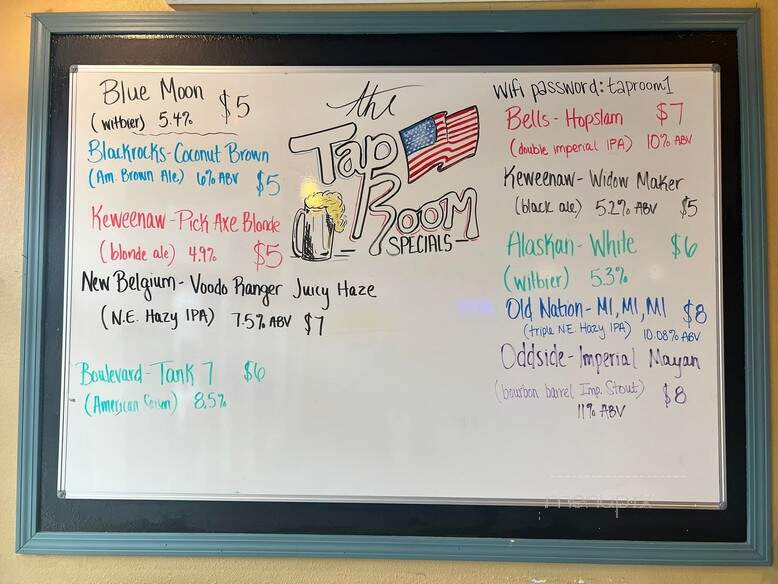 Blue Moon $5
(witbier) 5.4%
Blackrocks-Coconut Brown
(Am. Brown Ale) 6% ABV $5
Keweenaw-Pick Axe Blonde
(blonde ale) 4.9% $5
New Belgium-Voodo Ranger Juicy Haze
(N.E. Hazy IPA) 7.5% ABV $7
Boulevard-Tank 7 $6
(American) 8.5%
the
Tap
Room
SPECIALS
Wifi password: taproom1
Bells-Hopslam $7
(double imperial IPA) 10% ABV
Keweenaw-Widow Maker
(black ale) 5.2% ABV $5
Alaskan-White $6
(witbier) 5.3%
Old Nation-MI, MI, MI $8
(triple N.E. Hazy IPA) 10.08% ABV
Oddside-Imperial Mayan
(bourbon barrel Imp. Stout) $8
11% ABV
menupix